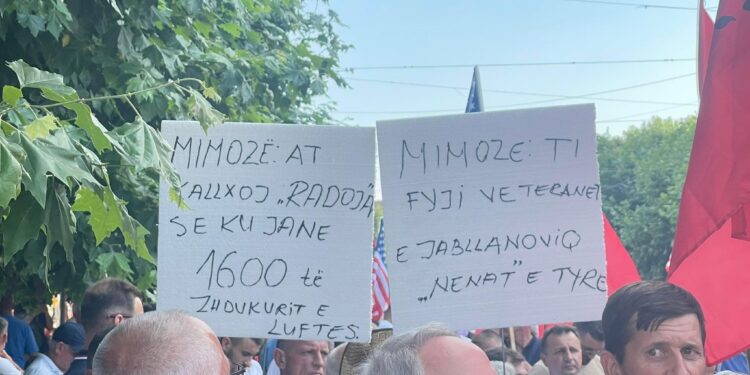 MIMOZË: AT
KALLXOJ „RADOJA"
SE KU JANE
1600 të
ZHDUKURIT E
LUFTES.
MIMOZE: TI
FYJI VETERANET
E JABLLANOVIQ
„NENAT" E TYRE